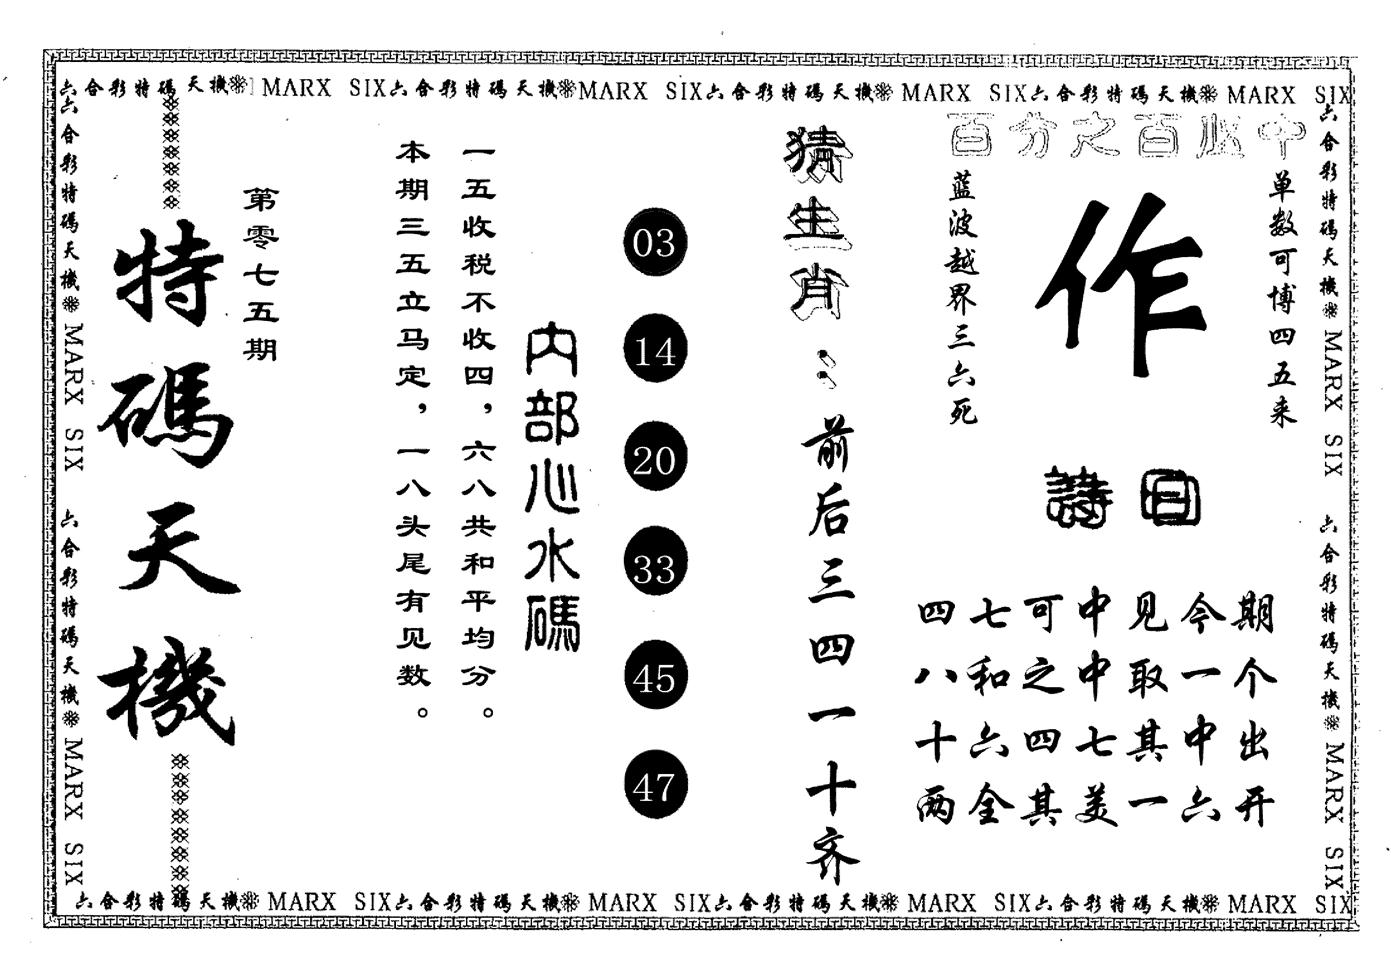 六合彩特碼天機 MARX SIX六合彩特碼天機MARX SIX六合彩特碼天機 MARX SIX六合彩特碼天機 MARX SIX
六合彩特碼天機 MARX SIX 六合彩特碼天機 MARX SIX
六合彩特碼天機 MARX SIX 六合彩特碼天機 MARX SIX
百分之百必中
单数可博四五来
作
蓝波越界三六死
詩曰
期个出开
今一中六
见取其一
中中七美
可之四其
七和六全
四八十两
猜生肖：前后三四一十齐
03
14
20
33
45
47
内部心水碼
一五收税不收四，六八共和平均分。
本期三五立马定，一八头尾有见数。
第零七五期
特碼天機
六合彩特碼天機 MARX SIX六合彩特碼天機 MARX SIX六合彩特碼天機 MARX SIX六合彩特碼天機 MARX SIX